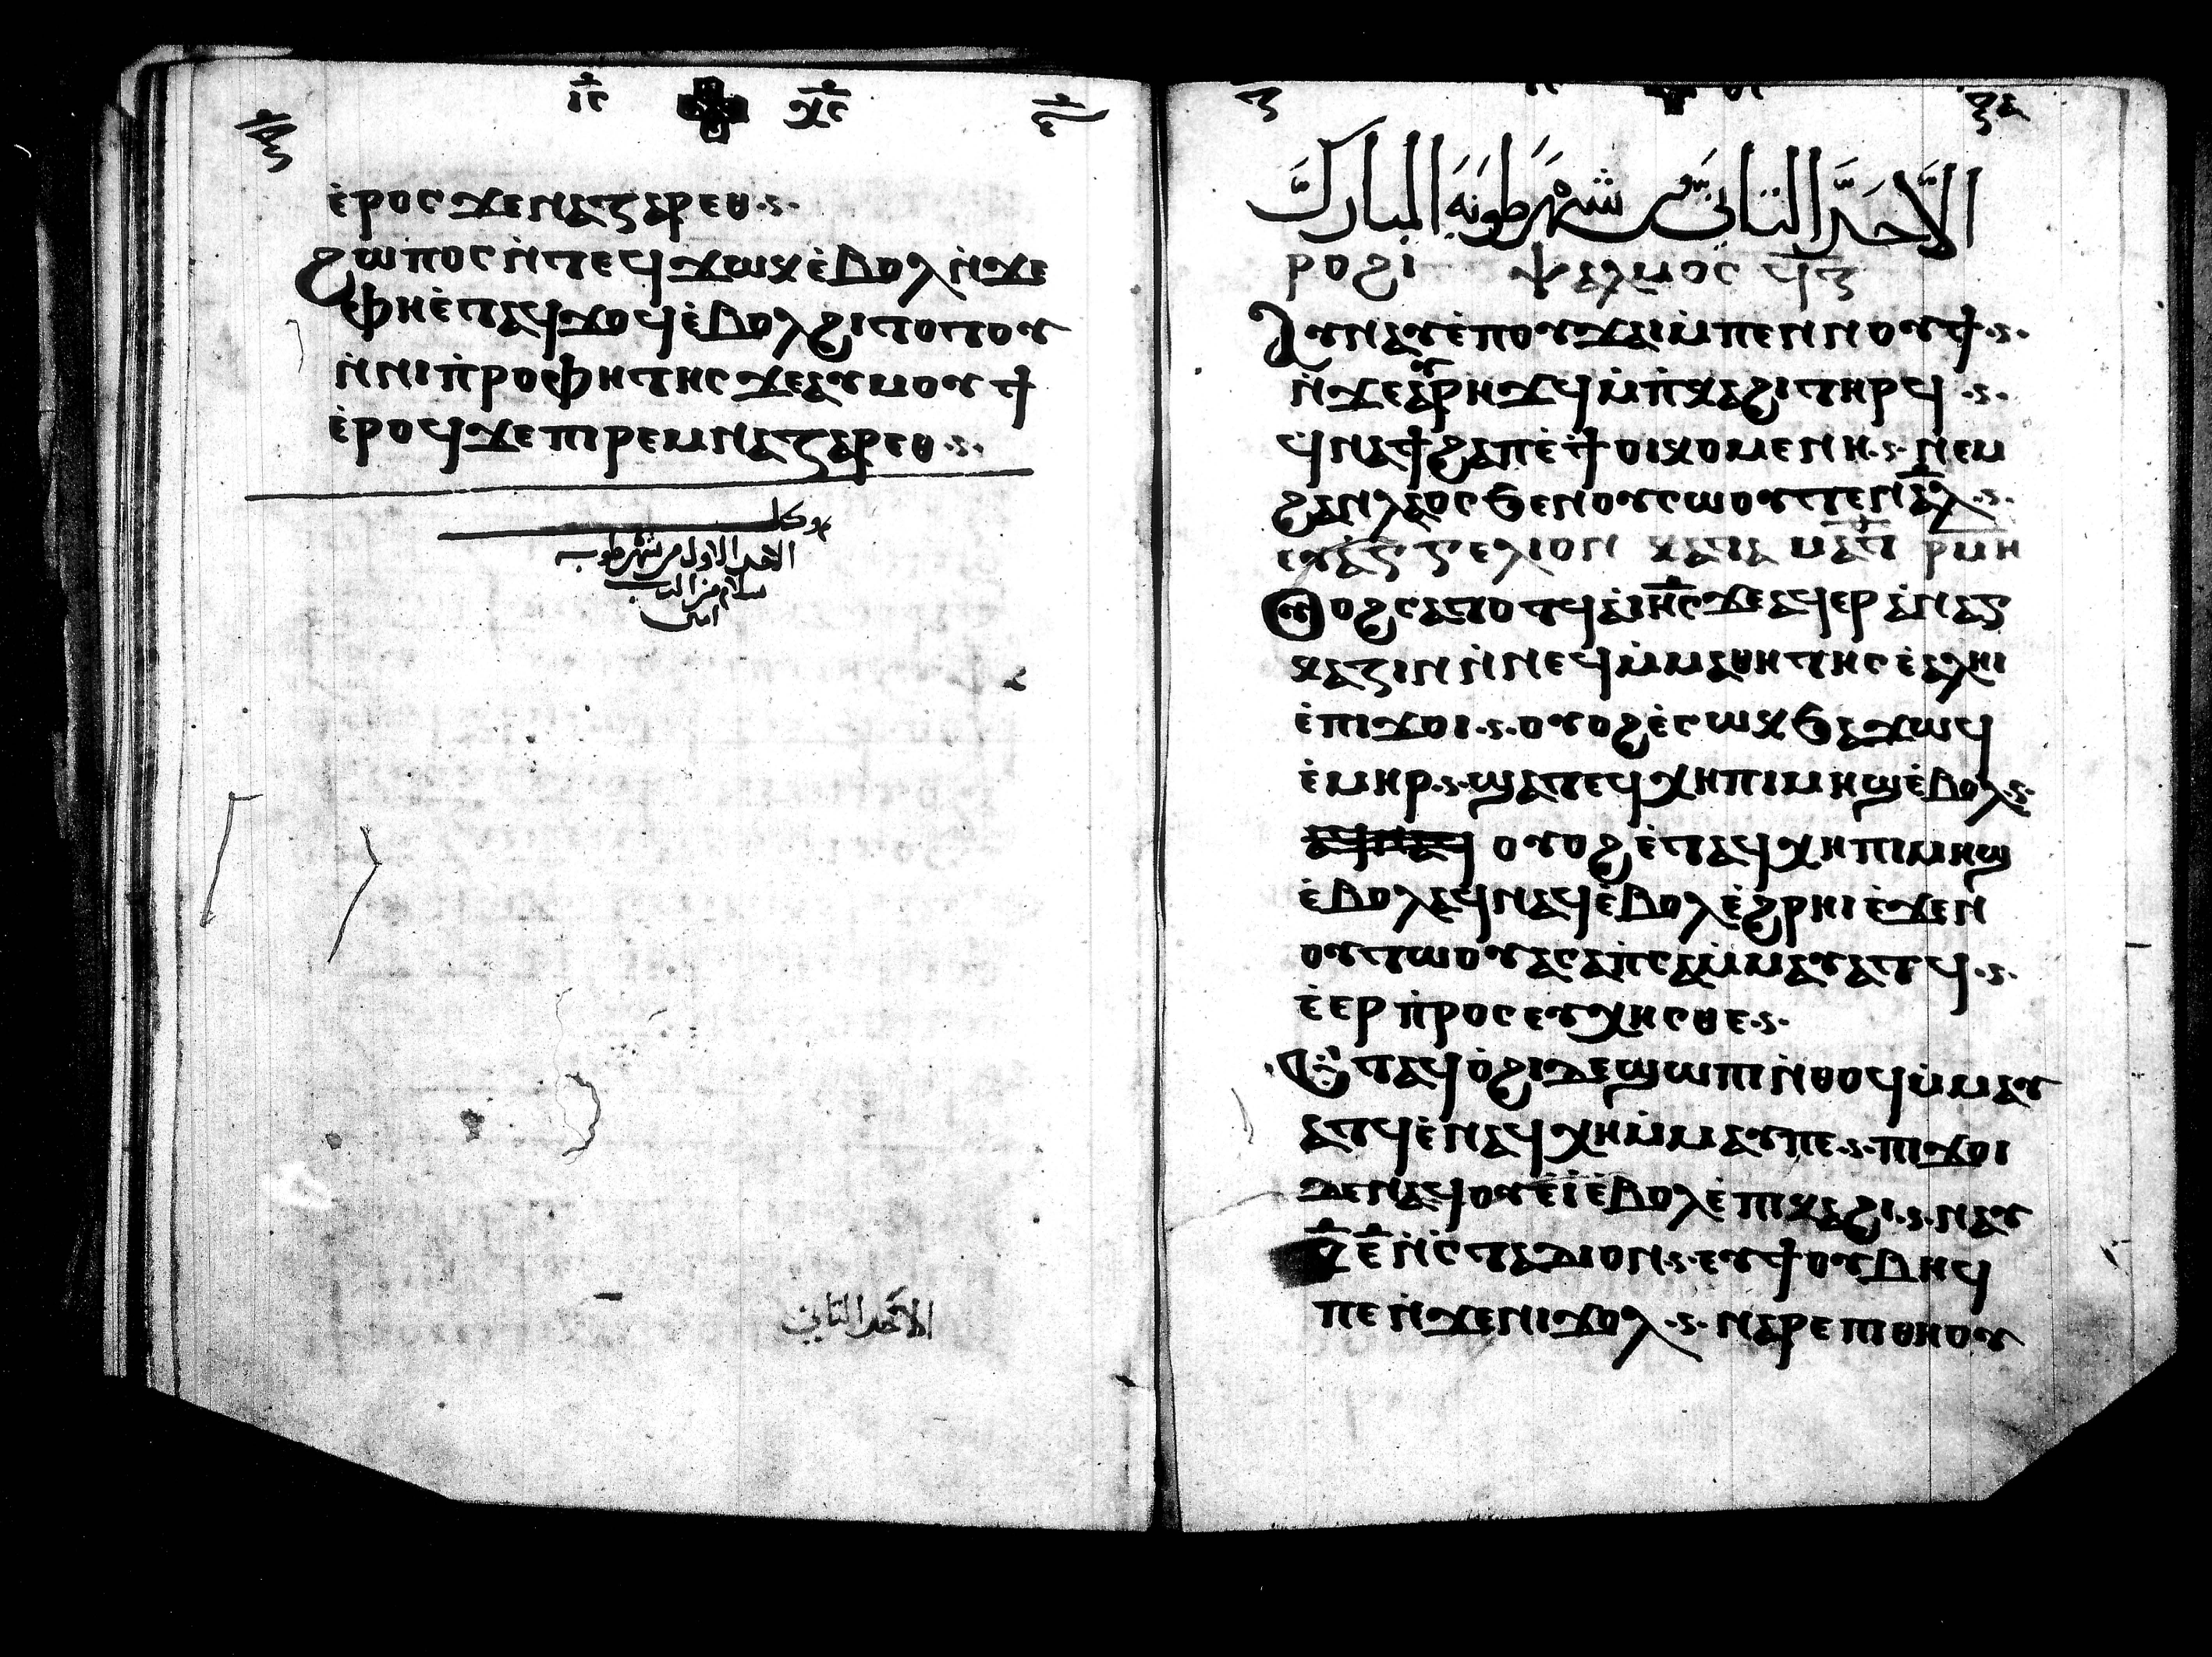 ⲓ̅ⲥ̅ ⲭ̅ⲥ̅
ⲉ̀ⲣⲟⲥ ϫⲉ ⲛⲁⲍⲁⲣⲉⲑ
ϩⲱⲡⲟⲥ ⲛ̀ⲧⲉϥϫⲱⲕ ⲉ̀ⲃⲟⲗ ⲛ̀ϫⲉ
ⲫⲏ ⲉ̀ⲧⲁϥϫⲟϥ ⲉ̀ⲃⲟⲗ ϩⲓⲧⲟⲧⲟⲩ
ⲛ̀ⲛⲓⲡ̀ⲣⲟⲫⲏⲧⲏⲥ ϫⲉ ⲁⲩⲙⲟⲩϯ
ⲉ̀ⲣⲟϥ ϫⲉ ⲡⲓⲣⲉⲙⲛⲁⲍⲁⲣⲉⲑ
الاحد الاول من شهر طوبه
سلام من الرب
امين
الاحد الثاني
الاحد الثاني من شهر طوبه المبارك
ⲣⲟϩⲓ ⲯⲁⲗⲙⲟⲥ ϥ̅ⲍ̅
ⲁⲩⲛⲁⲩ ⲉ̀ⲡⲟⲩϫⲁⲓ ⲙ̀ⲡⲉⲛⲛⲟⲩϯ
ⲛ̀ϫⲉ ⲁⲩⲣⲏϫϥ ⲙ̀ⲡ̀ⲕⲁϩⲓ ⲧⲏⲣϥ
ϥⲛⲁϯϩⲁⲡ ⲉ̀ϯⲟⲓⲕⲟⲙⲉⲛⲏ ⲛⲉⲙ
ϩⲁⲛⲗⲁⲟⲥ ϧⲉⲛ ⲟⲩⲥⲱⲟⲩⲧⲉⲛ ⲁ̅ⲗ̅
ⲉⲩⲁⲅⲅⲉⲗⲓⲟⲛ ⲕⲁⲧⲁ ⲙⲁⲧ ⲣⲙⲏ
ⲟⲩⲟϩ ⲥⲁⲧⲟⲧϥ ⲁ̀ ⲓ̅ⲏ̅ⲥ̅ ⲇⲉ ⲁϥⲉⲣⲁ̀ⲛⲁⲅ
ⲕⲁⲍⲓⲛ ⲛ̀ⲛⲉϥⲙ̀ⲙⲁⲑⲏⲧⲏⲥ ⲉ̀ⲁⲗⲏⲓ
ⲉ̀ⲡⲓϫⲟⲓ ⲟⲩⲟϩ ⲉ̀ⲥⲱⲕ ϧⲁϫⲱϥ
ⲉ̀ⲙⲏⲣ ϣⲁⲧⲉϥⲭⲏ ⲡⲓⲙⲏϣ ⲉ̀ⲃⲟⲗ
ⲟⲩⲟϩ ⲉ̀ⲧⲁϥⲭⲏ ⲡⲓⲙⲏϣ
ⲉ̀ⲃⲟⲗ ⲁϥⲛⲁϥ ⲉ̀ⲃⲟⲗ ⲉ̀ϩⲣⲏⲓ ⲉ̀ϫⲉⲛ
ⲟⲩⲧⲱⲟⲩ ⲁⲥⲁⲡⲥⲁ ⲙ̀ⲙⲁⲩⲁⲧϥ
ⲉ̀ⲉⲣⲡ̀ⲣⲟⲥⲉⲩⲭⲏⲥⲑⲉ
ⲉ̀ⲧⲁϥⲟ̀ϩⲓ ⲇⲉ ϣⲱⲡⲓ ⲛ̀ⲑⲟϥ ⲙ̀ⲙⲁⲩ
ⲁⲧϥ ⲉ̀ⲛⲁϥⲭⲏ ⲙ̀ⲙⲁⲩ ⲡⲉ ⲡⲓϫⲟⲓ
ⲇⲉ ⲛⲁϥⲟⲩⲉⲓ̀ ⲉ̀ⲃⲟⲗ ⲉ̀ⲡⲓⲕⲁϩⲓ ⲛⲁⲩ
ⲕ̅ⲉ̅ ⲛ̀ⲥ̀ⲧⲁⲇⲓⲟⲛ ⲉⲩϯⲟⲩⲃⲏϥ
ⲡⲉ ⲛ̀ϫⲉ ⲛⲓϫⲟⲗ ⲛⲁⲣⲉ ⲡⲓⲑⲏⲟⲩ